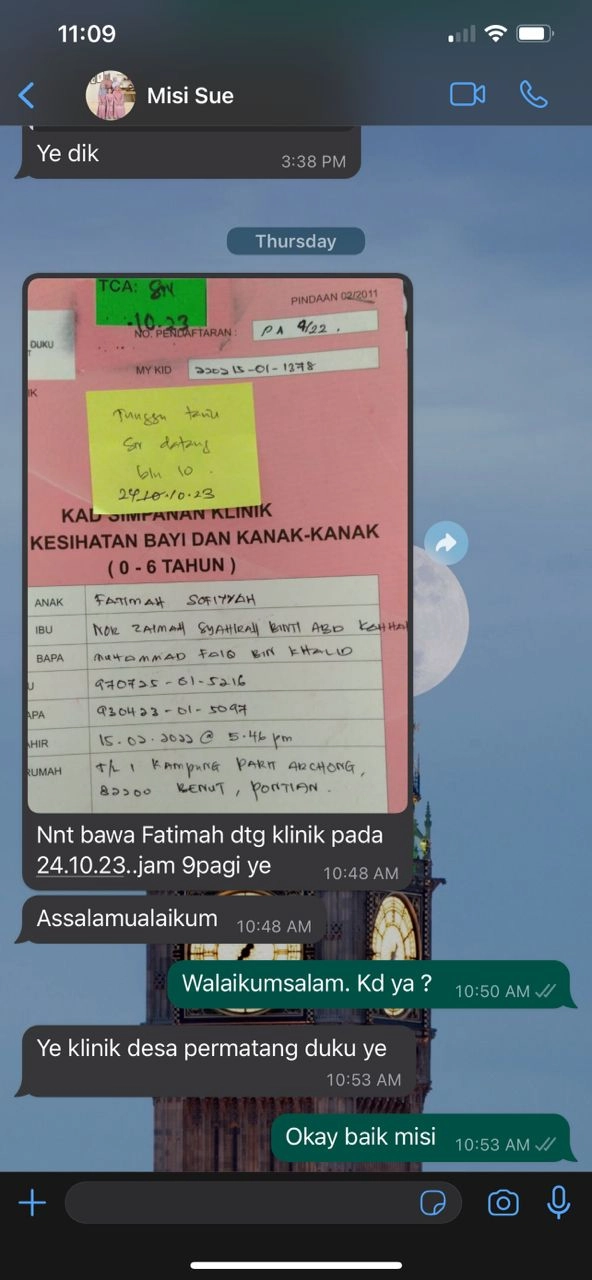 11:09
Misi Sue
Ye dik
3:38 PM
Thursday
TCA: SM
.10.23
PINDAAN 02/2011
NO. PENDAFTARAN : PA 4/22.
DUKU
MY KID 220215-01-1378
IK
Tunggu
datang
bln 10.
24.10.23
KAD SIMPANAN KLINIK
KESIHATAN BAYI DAN KANAK-KANAK
( 0 - 6 TAHUN )
ANAK FATIMAH SOFIYYAH
IBU NOR ZAIMAH SYAHIRAH BINTI ABD KAHHA
BAPA MUHAMMAD FAIQ BIN KHALID
U 970725-01-5216
APA 930423-01-5097
AHIR 15.02.2022 @ 5.46 pm
RUMAH T/L 1 KAMPUNG PARIT ARCHONG,
82200 BENUT, PONTIAN.
Nnt bawa Fatimah dtg klinik pada
24.10.23..jam 9pagi ye
10:48 AM
Assalamualaikum
10:48 AM
Walaikumsalam. Kd ya ?
10:50 AM
Ye klinik desa permatang duku ye
10:53 AM
Okay baik misi
10:53 AM